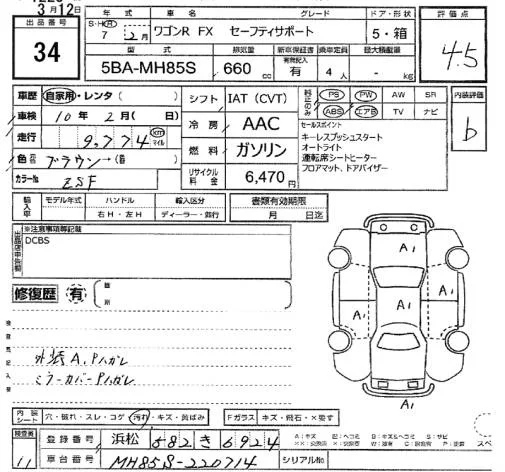 3月12日
出品番号
34
年式 車名 グレード ドア・形状
S・H・R 7年 2月 ワゴンR FX セーフティサポート 5・箱
型式 排気量 新車保証書 乗車定員 最大積載量
有効記入
5BA-MH85S 660 cc 有 4人 - kg
評価点
4.5
車歴 自家用・レンタ( )
車検 10年 2月( 日)
走行 9,774 km マイル
色 ブラウン→(色 )
カラーNo ZSF
シフト IAT (CVT)
冷房 AAC
燃料 ガソリン
リサイクル料金 6,470円
PS PW AW SR
ABS エアB TV ナビ
セールスポイント
キーレスプッシュスタート
オートライト
運転席シートヒーター
フロアマット、ドアバイザー
内装評価
b
輸入車 モデル年式 ハンドル 輸入区分
右H・左H ディーラー・並行
書類有効期限
月 日迄
※注意事項等記載
DCBS
修復歴 有
箇所
外装A,Pハガレ
ミラーカバーPハガレ
A1
A1
A1
A1
A1
内装シート 穴・破れ・スレ・コゲ・汚れ・キズ・黄ばみ
Fガラス キズ・飛石・×要す
検査員
11
登録番号 浜松 582 き 6924
車台番号 MH85S-220714
シリアルNo